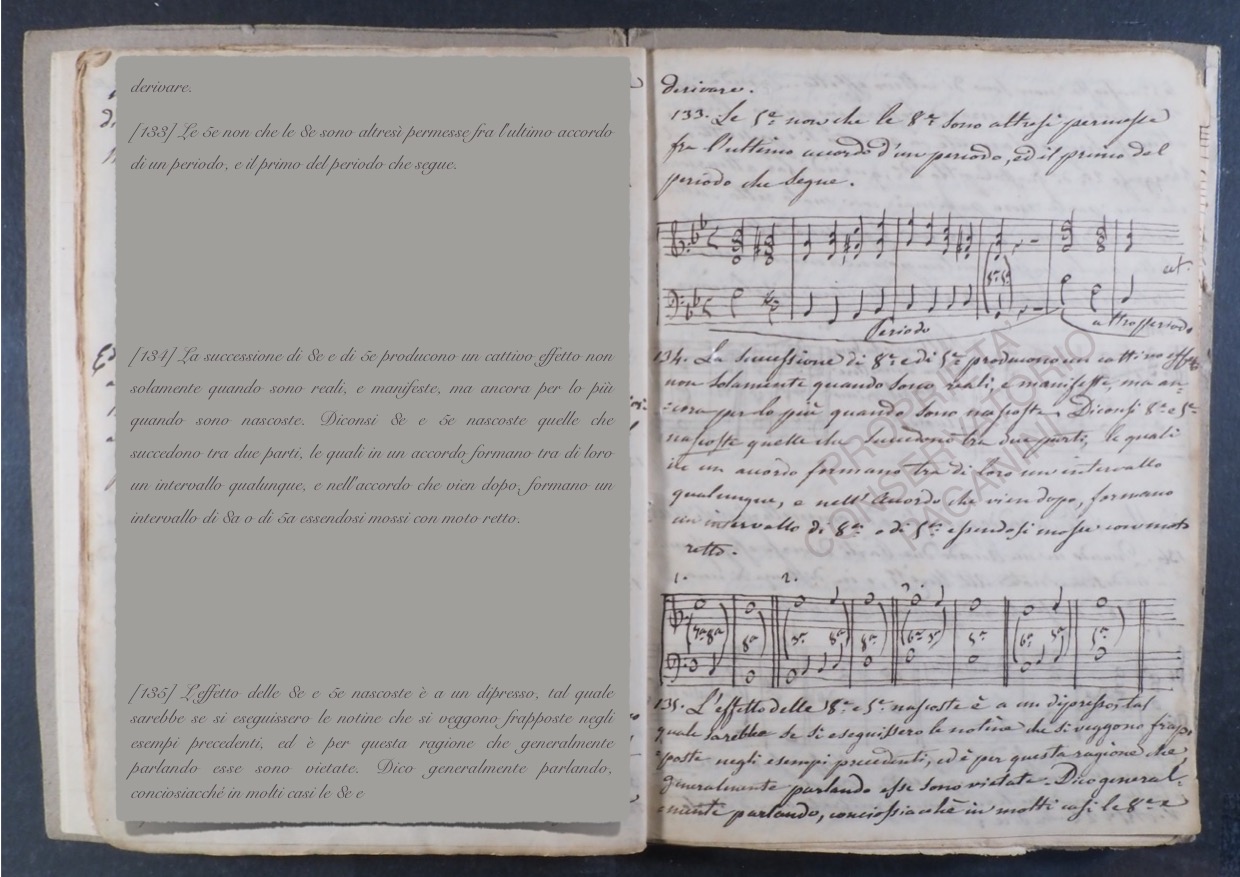 derivare.
[133] Le 5e non che le 8e sono altresì permesse fra l'ultimo accordo
di un periodo, e il primo del periodo che segue.
[134] La successione di 8e e di 5e producono un cattivo effetto non
solamente quando sono reali, e manifeste, ma ancora per lo più
quando sono nascoste. Diconsi 8e e 5e nascoste quelle che
succedono tra due parti, le quali in un accordo formano tra di loro
un intervallo qualunque, e nell'accordo che vien dopo, formano un
intervallo di 8a o di 5a essendosi mossi con moto retto.
[135] L'effetto delle 8e e 5e nascoste è a un dipresso, tal quale
sarebbe se si eseguissero le notine che si veggono frapposte negli
esempi precedenti, ed è per questa ragione che generalmente
parlando esse sono vietate. Dico generalmente parlando,
conciosiacché in molti casi le 8e e
derivare.
133. Le 5e non che le 8e sono altresì permesse
fra l'ultimo accordo d'un periodo, ed il primo del
periodo che segue.
Periodo
altro periodo
134. La successione di 8e e di 5e producono un cattivo effet
non solamente quando sono reali, e manifeste, ma an-
=cora per lo più quando sono nascoste. Diconsi 8e e 5e
nascoste quelle che succedono tra due parti, le quali
in un accordo formano tra di loro un intervallo
qualunque, e nell'accordo che vien dopo, formano
un intervallo di 8a o di 5a essendosi mosse con moto
retto.
1. 2.
135. L'effetto delle 8e e 5e nascoste è a un dipresso, tal
quale sarebbe se si eseguissero le notine che si veggono frap-
poste negli esempi precedenti, ed è per questa ragione che
generalmente parlando esse sono vietate. Dico general-
=mente parlando, conciossiachè in molti casi le 8e e
PROPRIETÀ
CONSERVATORIO
PAGANINI